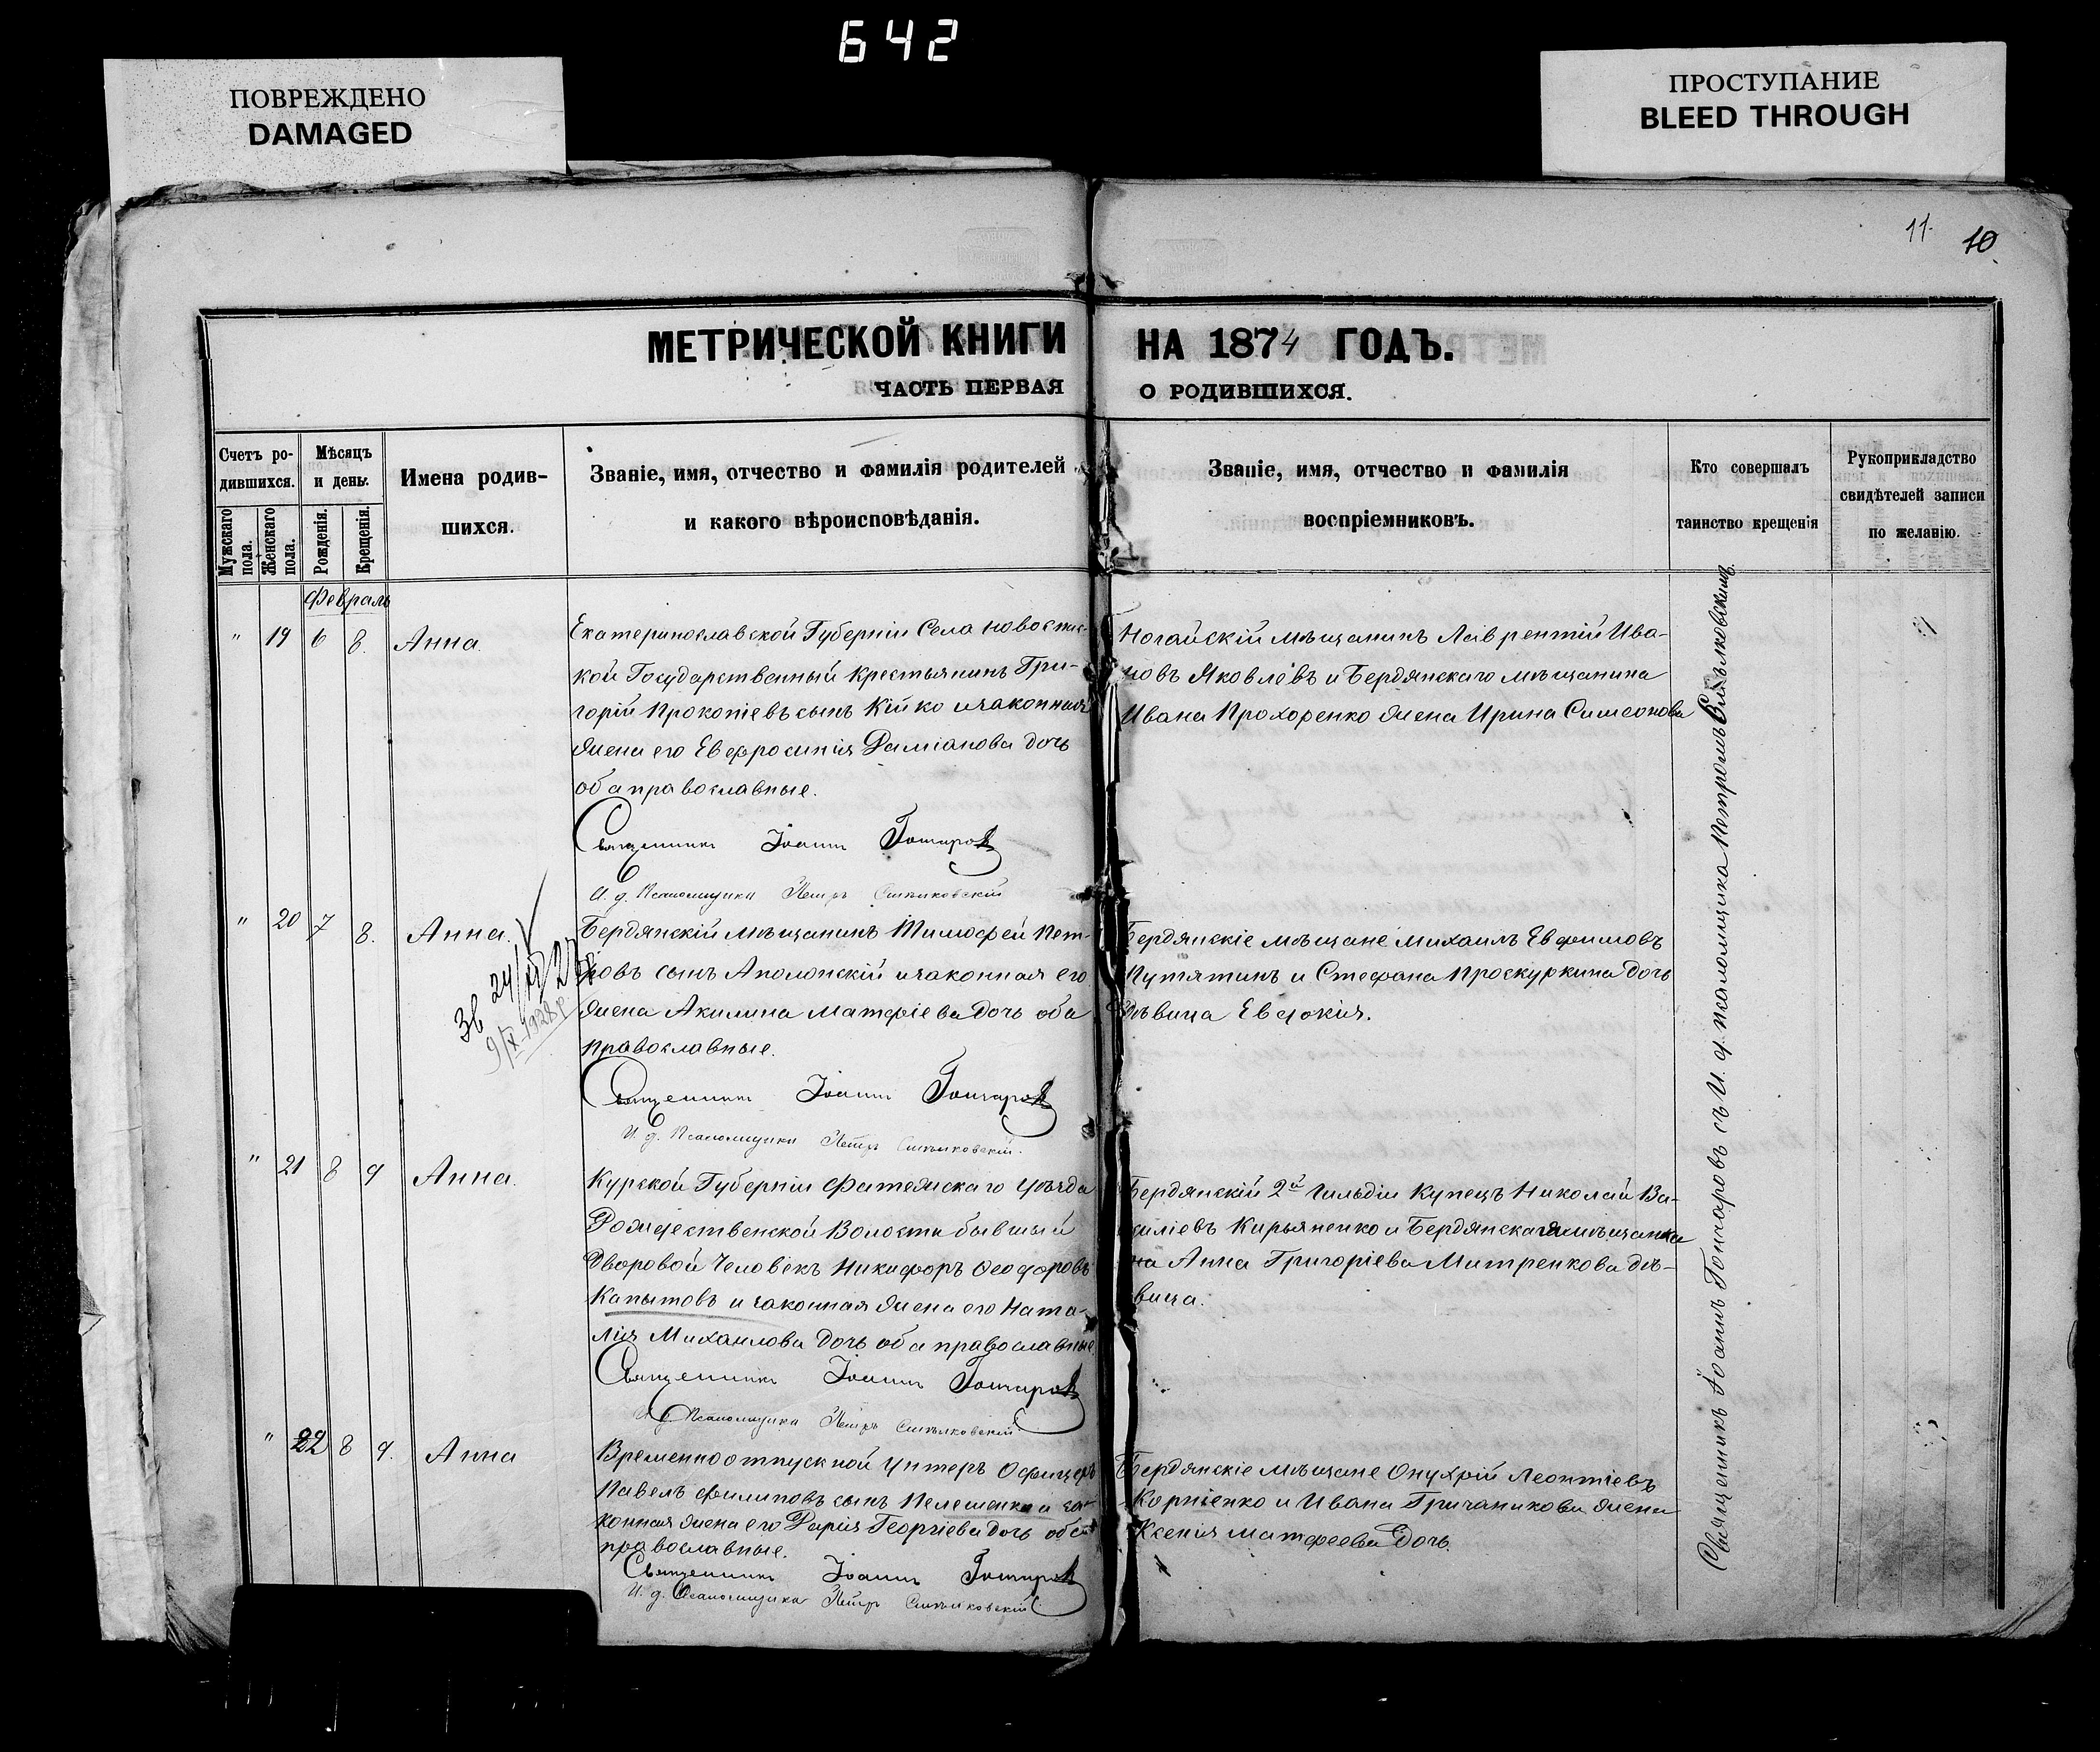 642
ПОВРЕЖДЕНО
DAMAGED
ПРОСТУПАНИЕ
BLEED THROUGH
11.
10.
МЕТРИЧЕСКОЙ КНИГИ НА 1874 ГОДЪ.
ЧАСТЬ ПЕРВАЯ О РОДИВШИХСЯ.
Счетъ ро-
дившихся.
Мужскаго пола.
Женскаго пола.
Мѣсяцъ
и день.
Рожденія.
Крещенія.
Имена родив-
шихся.
Званіе, имя, отчество и фамилія родителей
и какого вѣроисповѣданія.
Званіе, имя, отчество и фамилія
воспріемниковъ.
Кто совершалъ
таинство крещенія
Рукоприкладство
свидѣтелей записи
по желанію.
Февраль
" 19 6 8. Анна.
Екатеринославской Губерніи Села Новоспас-
кой Государственный крестьянинъ Гри-
горій Прокопіевъ сынъ Кійко и законная
жена его Евфросинія Даміанова дочь
оба православные.
Священникъ Іоаннъ Гончаровъ
И. д. Псаломщика Петръ Синьковскій
Ногайскій мѣщанинъ Лаврентій Ива-
новъ Яковлевъ и Бердянскаго мѣщанина
Ивана Прохоренко жена Ирина Симеонова
" 20 7 8. Анна.
9/X 1928 р
Бердянскій мѣщанинъ Тимофей Пет-
ровъ сынъ Аполонскій и законная его
жена Акилина Матфіева дочь оба
православные.
Священникъ Іоаннъ Гончаровъ
И. д. Псаломщика Петръ Синьковскій.
Бердянскіе мѣщане Михаилъ Евфимовъ
Путятинъ и Стефана Проскуркина дочь
дѣвица Евдокія.
" 21 8 9 Анна.
Курской Губерніи Фатежскаго уѣзда
Рождественской Волости бывшый
Дворовой Человѣкъ Никифоръ Феодоровъ
Капытовъ и законная жена его Ната-
лія Михаилова дочь оба православные.
Священникъ Іоаннъ Гончаровъ
И. д. Псаломщика Петръ Синьковскій
Бердянскій 2й Гильдіи Купецъ Николай Ва-
силіевъ Кирьяненко и Бердянская мѣщанка
на Анна Григоріева Митренкова дѣ-
вица.
" 22 8 9. Анна
Временноотпускной Унтеръ Офицеръ
Павелъ Филиповъ сынъ Пелешенко и за-
конная жена его Дарія Георгіева дочь оба
православные.
Священникъ Іоаннъ Гончаровъ
И. д. Псаломщика Петръ Синьковскій
Бердянскіе мѣщане Онуфрій Леонтіевъ
Корніенко и Ивана Гричаникова жена
Ксенія Матфеева дочь.
Священникъ Іоаннъ Гончаровъ съ И. д. псаломщика Петромъ Синьковскимъ.